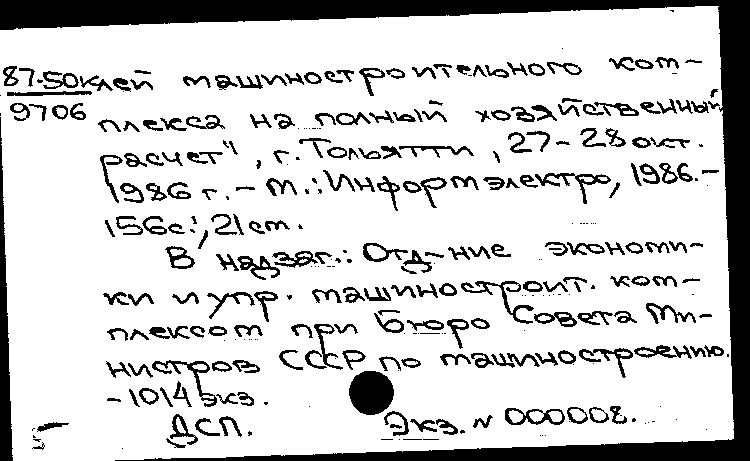 87-50клей машиностроительного ком-
9706 плекса на полный хозяйственный
расчет", г. Тольятти, 27-28 окт.
1986 г. - М.: Информэлектро, 1986.-
156с.; 21 см.
В надзаг.: Отд-ние экономи-
ки и упр. машиностроит. ком-
плексом при Бюро Совета Ми-
нистров СССР по машиностроению.
-1014 экз.
ДСП. Экз. N 000008.